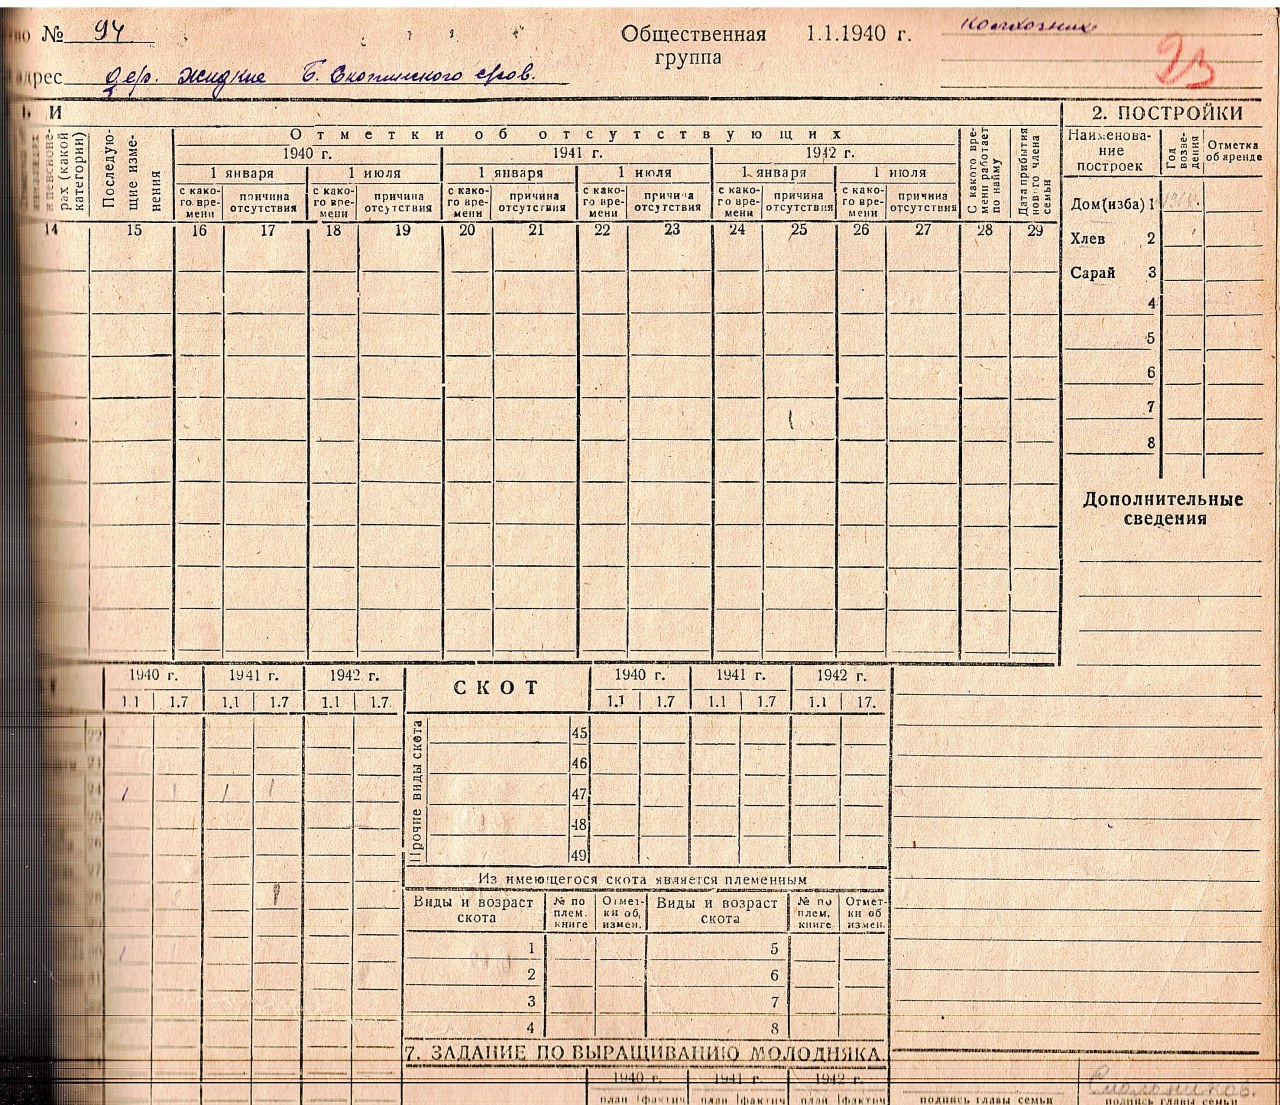 № 94
Общественная группа 1.1.1940 г. колхозник
23
дер. Жидкие Б. Скопинского
И
2. ПОСТРОЙКИ
рах (какой категории)
Последующие изменения
Отметки об отсутствующих
С какого времени работает по найму
Дата прибытия нового члена семьи
Наименование построек
Год возведения
Отметка об аренде
1940 г. 1941 г. 1942 г.
1 января 1 июля 1 января 1 июля 1 января 1 июля
с какого времени причина отсутствия с какого времени причина отсутствия с какого времени причина отсутствия с какого времени причина отсутствия с какого времени причина отсутствия с какого времени причина отсутствия
14 15 16 17 18 19 20 21 22 23 24 25 26 27 28 29
Дом(изба) 1
Хлев 2
Сарай 3
4
5
6
7
8
Дополнительные
сведения
1940 г. 1941 г. 1942 г. СКОТ 1940 г. 1941 г. 1942 г.
1.1 1.7 1.1 1.7 1.1 1.7 1.1 1.7 1.1 1.7 1.1 17.
Прочие виды скота
45
46
47
48
49
1 1 1 1
1 1
Из имеющегося скота является племенным
Виды и возраст скота № по плем. книге Отметки об, измен. Виды и возраст скота № по плем, книге Отметки об измен.
1 5
2 6
3 7
4 8
7. ЗАДАНИЕ ПО ВЫРАЩИВАНИЮ МОЛОДНЯКА.
1940 г. 1941 г. 1942 г.
план фактич план фактич план фактич
подпись главы семьи подпись главы семьи